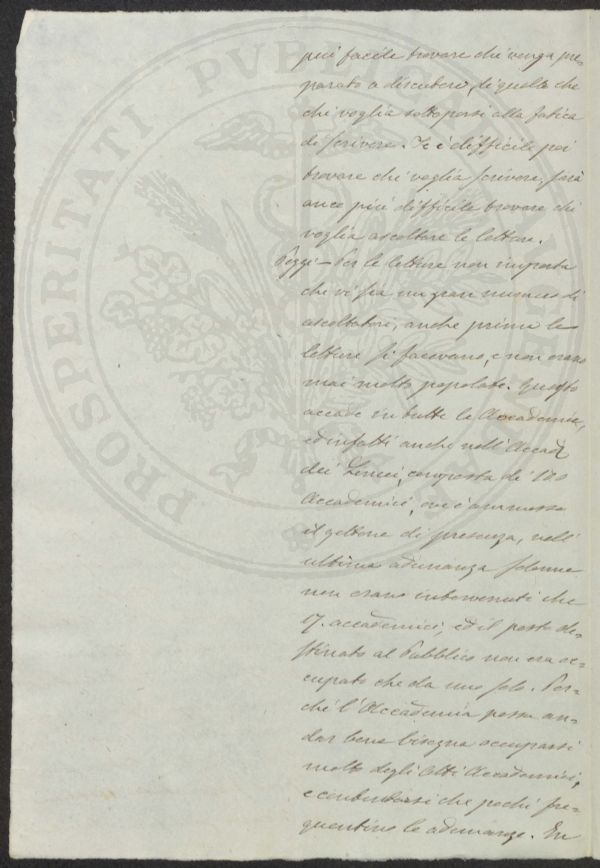 PROSPERITATI PUBLICAE AUGENDAE
più facile trovare chi venga pre-
parato a discutere, di quello che
chi voglia sottoporsi alla fatica
di scrivere. Se è difficile poi
trovare chi voglia scrivere, sarà
anco più difficile trovare chi
voglia ascoltare le letture.
Poggi — Per le letture non importa
che vi sia un gran numero di
ascoltatori, anche prima le
letture si facevano, e non erano
mai molto popolate. Questo
accade in tutte le Accademie,
ed infatti anche nell'Accad
dei Lincei, composta di 120
Accademici, ove è ammesso
il gettone di presenza, nell'
ultima adunanza solenne
non erano intervenuti che
17. accademici, ed il posto de-
stinato al Pubblico non era oc=
cupato che da uno solo. Per=
chè l'Accademia possa an=
dar bene bisogna occuparsi
molto degli Atti Accademici,
e contentarsi che pochi fre=
quentino le adunanze. In